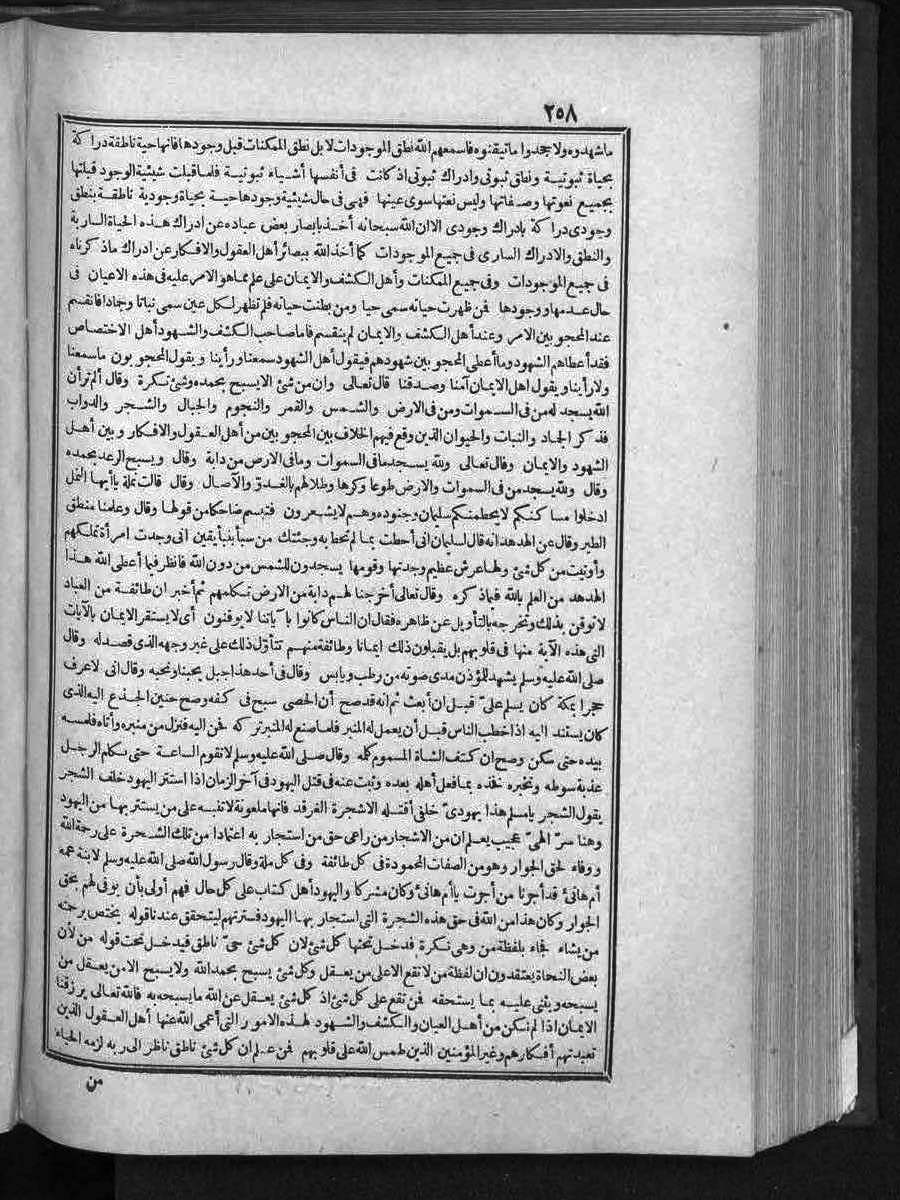 ٢٥٨
ماشهدوه ولا يجحدوا ماتيقنوه فاسمعهم الله نطق الموجودات لا بل نطق الممكنات قبل وجودها فانها حية ناطقة دراكة
بحياة ثبوتية ونطق ثبوتى وادراك ثبوتى اذ كانت فى أنفسها أشياء ثبوتية فلما قبلت شيئية الوجود قبلتها
بجميع نعوتها وصفاتها وليس نعتها سوى عينها فهى فى حال شيئية وجودها حية بحياة وجودية ناطقة بنطق
وجودى دراكة بادراك وجودى الا ان الله سبحانه أخذ بابصار بعض عباده عن ادراك هذه الحياة السارية
والنطق والادراك السارى فى جميع الموجودات كما أخذ الله ببصائر أهل العقول والافكار عن ادراك ماذكرناه
فى جميع الموجودات وفى جميع الممكنات وأهل الكشف والايمان على علم مما هو الامر عليه فى هذه الاعيان فى
حال عدمها ووجودها فمن ظهرت حياته سمى حيا ومن بطنت حياته فلم تظهر لكل عين سمى نباتا وجمادا فانقسم
عند المحجوبين الامر وعند أهل الكشف والايمان لم ينقسم فاما صاحب الكشف والشهود أهل الاختصاص
فقد أعطاهم الشهود وما أعطى المحجوبين شهودهم فيقول أهل الشهود سمعنا ورأينا ويقول المحجوبون ما سمعنا
ولا رأينا ويقول اهل الايمان آمنا وصدقنا قال تعالى وان من شئ الا يسبح بحمده وشئ نكرة وقال ألم تر أن
الله يسجد له من فى السموات ومن فى الارض والشمس والقمر والنجوم والجبال والشجر والدواب
فذكر الجماد والنبات والحيوان الذين وقع فيهم الخلاف بين المحجوبين من أهل العقول والافكار وبين أهل
الشهود والايمان وقال تعالى ولله يسجد مافى السموات ومافى الارض من دابة وقال ويسبح الرعد بحمده
وقال ولله يسجد من فى السموات والارض طوعا وكرها وظلالهم بالغدو والآصال وقال قالت نملة ياأيها النمل
ادخلوا مساكنكم لا يحطمنكم سليمان وجنوده وهم لا يشعرون فتبسم ضاحكا من قولها وقال وعلمنا منطق
الطير وقال عن الهدهد انه قال لسليمان انى أحطت بما لم تحط به وجئتك من سبأ بنبأ يقين انى وجدت امرأة تملكهم
وأوتيت من كل شئ ولها عرش عظيم وجدتها وقومها يسجدون للشمس من دون الله فانظر فيما أعطى الله هذا
الهدهد من العلم بالله فيما ذكره وقال تعالى أخرجنا لهم دابة من الارض تكلمهم ثم أخبر ان طائفة من العباد
لا توقن بذلك وتخرجه بالتأويل عن ظاهره فقال ان الناس كانوا بآياتنا لا يوقنون أى لا يستقر الايمان بالآيات
التى هذه الآية منها فى قلوبهم بل يقبلون ذلك ايمانا وطائفة منهم تتأول ذلك على غير وجهه الذى قصد له وقال
صلى الله عليه وسلم يشهد للمؤذن مدى صوته من رطب ويابس وقال فى أحد هذا جبل يحبنا ونحبه وقال انى لاعرف
حجرا بمكة كان يسلم علىّ قبل ان أبعث ثم انه قد صح أن الحصى سبح فى كفه وصح حنين الجذع اليه الذى
كان يستند اليه اذا خطب الناس قبل أن يعمل له المنبر فلما صنع له المنبر تركه فحن اليه فنزل من منبره وأتاه فلمسه
بيده حتى سكن وصح ان كتف الشاة المسموم كله وقال صلى الله عليه وسلم لا تقوم الساعة حتى تكلم الرجل
عذبة سوطه وتخبره فخذه بما فعل أهله بعده وثبت عنه فى قتل اليهود فى آخر الزمان اذا استتر اليهود خلف الشجر
يقول الشجر يا مسلم هذا يهودىّ خلفى أقتله الا شجرة الغرقد فانها ملعونة لا تنبه على من يستتر بها من اليهود
وهنا سرّ الهىّ عجيب يعلم ان من الاشجار من راعى حق من استجار به اعتمادا من تلك الشجرة على رحمة الله
ووفاء لحق الجوار وهو من الصفات المحمودة فى كل طائفة وفى كل ملة وقال رسول الله صلى الله عليه وسلم لابنة عمه
أم هانئ قد أجرنا من أجرت ياأم هانئ وكان مشركا واليهود أهل كتاب على كل حال فهم أولى بأن يوفى لهم بحق
الجوار وكان هذا من الله فى حق هذه الشجرة التى استجار بها اليهود فسترتهم ليتحقق عندنا قوله يختص برحمته
من يشاء فجاء بلفظة من وهى نكرة فدخل تحتها كل شئ لان كل شئ حىّ ناطق فيدخل تحت قوله من لأن
بعض النحاة يعتقدون ان لفظة من لا تقع الا على من يعقل وكل شئ يسبح بحمد الله ولا يسبح الا من يعقل من
يسبحه ويثنى عليه بما يستحقه فمن تقع على كل شئ اذ كل شئ يعقل عن الله ما يسبحه به فالله تعالى يرزقنا
الايمان اذا لم نكن من أهل العيان والكشف والشهود لهذه الامور التى أعمى الله عنها أهل العقول الذين
تعبدتهم أفكارهم وغير المؤمنين الذين طمس الله على قلوبهم فمن علم ان كل شئ ناطق ناظر الى ربه لزمه الحياء
من